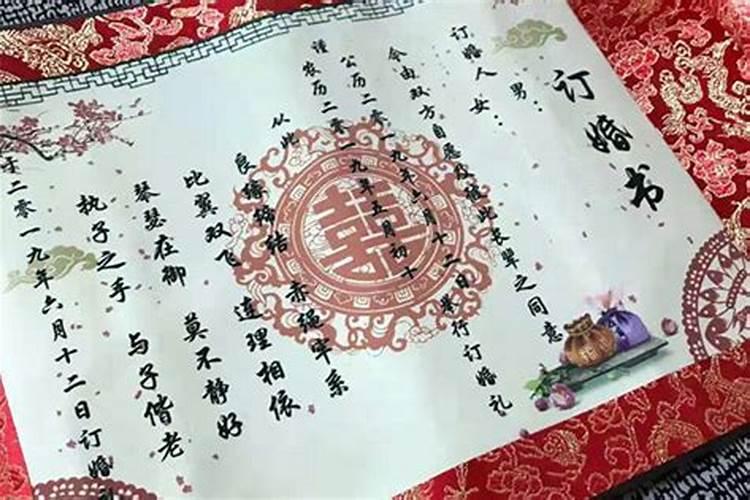 订婚书
订婚人 男：
女：
今由双方自愿及彼此长辈之同意
公历二零一九年六月十二日举行订婚礼
谨 农历二零一九年五月初十
从此
良缘缔结 赤绳牢系
比翼双飞 连理相依
琴瑟在御 莫不静好
执子之手 与子偕老
于二零一九年六月十二日订婚